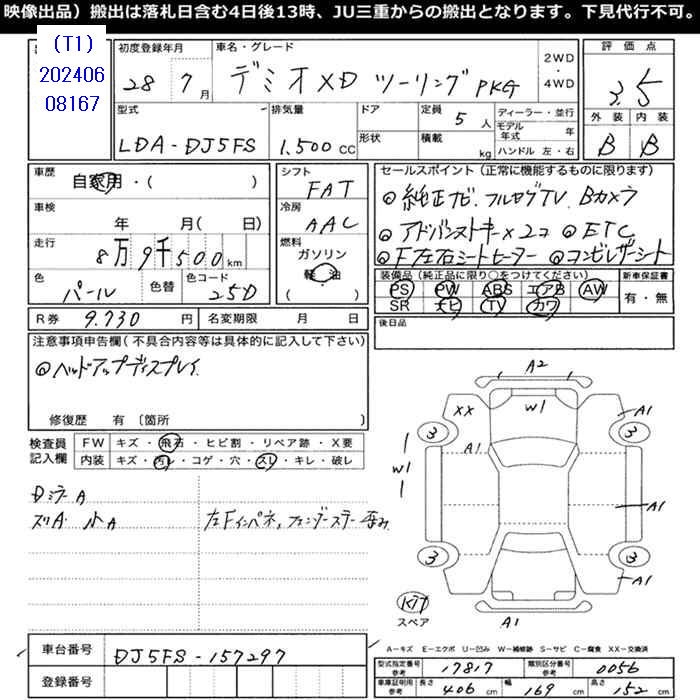 映像出品）搬出は落札日含む4日後13時、JU三重からの搬出となります。下見代行不可。
(T1)
202406
08167
初度登録年月
28年 7月
車名・グレード
デミオXD ツーリングPKG
2WD・4WD
評価点
3.5
外装 内装
B B
型式
LDA-DJ5FS
排気量
1.500 CC
ドア
形状
定員 5 人
積載 kg
ディーラー・並行
モデル年式 年
ハンドル 左・右
車歴
自家用・( )
車検
年 月( 日)
走行
8万9千500 km
色
パール
色替
色コード
25D
シフト
FAT
冷房
AAC
燃料
ガソリン
軽 油
( ・ )
セールスポイント（正常に機能するものに限ります）
◎純正ナビ.フルセグTV.Bカメラ
◎アドバンストキー×2コ ◎ETC
◎F左右シートヒーター ◎コンビレザーシート
装備品（純品に限り○をつけてください）
PS PW ABS エアB AW
SR ナビ TV カワ
新車保証書
有・無
後日品
R券 9.730 円
名変期限 月 日
注意事項申告欄（不具合内容等は具体的に記入して下さい）
◎ヘッドアップディスプレイ.
修復歴 有〔箇所 〕
検査員記入欄
FW キズ・飛石・ヒビ割・リペア跡・X要
内装 キズ・汚レ・コゲ・穴・スレ・キレ・破レ
A
ズリA 小A
左Fインパネ,フェンダーステー歪み
A2
XX
W1
A1
3
3
A1
W1
A1
3
3
A1
KIT
スペア
A1
A－キズ E－エクボ U－凹み W－補修跡 S－サビ C－腐食 XX－交換済
車台番号
DJ5FS-157297
登録番号
型式指定番号 参考 17817
類別区分番号 参考 0056
車庫証明用 参考 長さ 406 cm 幅 169 cm 高さ 152 cm